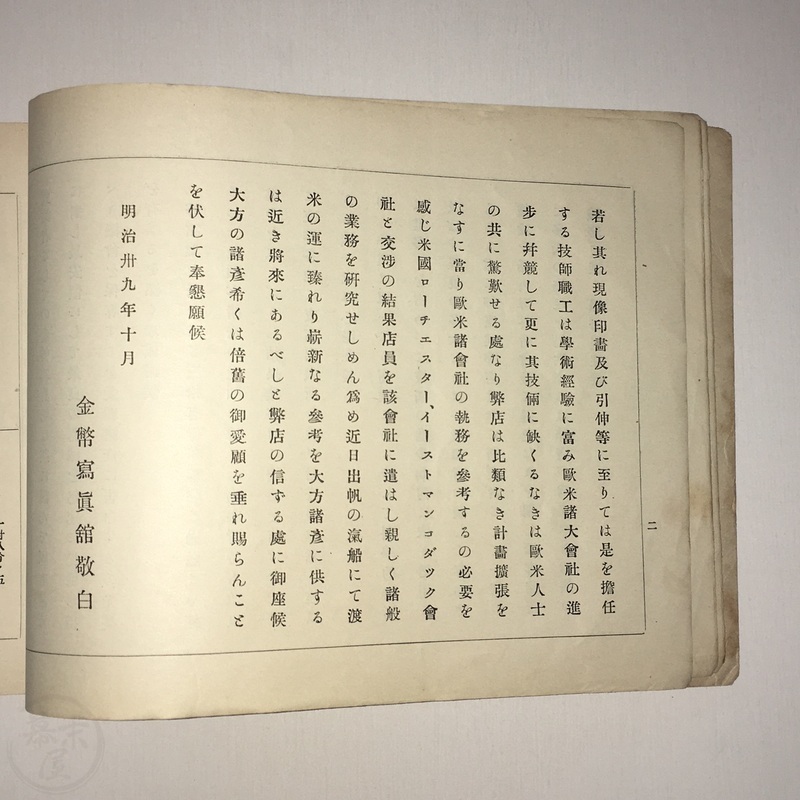 若し其れ現像印畫及び引伸等に至りては是を擔任
する技師職工は學術經驗に富み歐米諸大會社の進
步に幷競して更に其技倆に缺くるなきは歐米人士
の共に驚歎せる處なり弊店は比類なき計畫擴張を
なすに當り歐米諸會社の執務を參考するの必要を
感じ米國ローチエスター、イーストマンコダツク會
社と交涉の結果店員を該會社に遣はし親しく諸般
の業務を硏究せしめん爲め近日出帆の滊船にて渡
米の運に臻れり嶄新なる參考を大方諸彥に供する
は近き將來にあるべしと弊店の信する處に御座候
大方の諸彥希くは倍舊の御愛顧を垂れ賜らんこと
を伏して奉懇願候
明治卅九年十月
金幣寫眞舘敬白
二